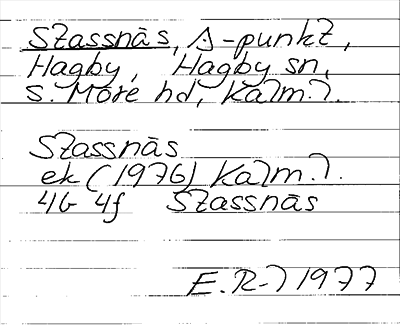 Stassnäs, A-punkt,
Hagby, Hagby sn,
S. Möre hd, Kalm. l.
Stassnäs
ek (1976) Kalm. l.
4G 4f Stassnäs
E. R-l 1977